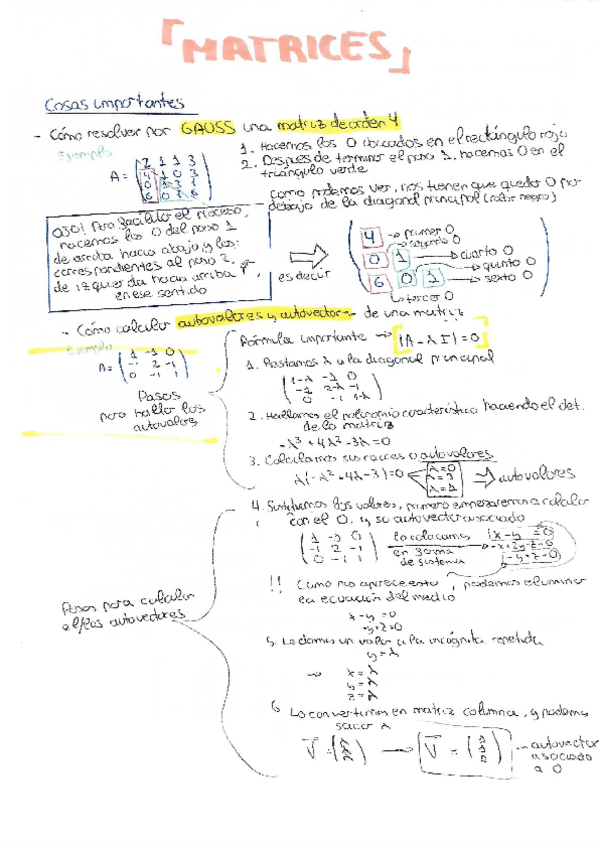 「MATRICES」
Cosas importantes
- Cómo resolver por GAUSS una matriz de orden 4
Ejemplo
A =
2 1 1 3
1. Hacemos los 0 ubicados en el rectángulo rojo
2. Después de terminar el paso 1. hacemos 0 en el
triángulo verde
como podemos ver, nos tienen que quedar 0 por
debajo de la diagonal principal (color negro)
OJO! Para facilitar el proceso,
hacemos los 0 del paso 1
de arriba hacia abajo y los
correspondientes al paso 2,
de izquierda hacia arriba
en ese sentido
es decir
4 → primer 0
→ segundo 0
0 1 → cuarto 0
→ quinto 0
6 0 1 → sexto 0
→ tercer 0
- Cómo calcular autovalores y autovectores de una matriz
Ejemplo
A = ( 1 -1 0
-1 2 -1
0 -1 1 )
Pasos
para hallar los
autovalores
Fórmula importante → |A - λI| = 0
1. Restamos λ a la diagonal principal
( 1-λ -1 0
-1 2-λ -1
0 -1 1-λ )
2. Hallamos el polinomio característico haciendo el det.
de la matriz
-λ³ + 4λ² - 3λ = 0
3. Calculamos sus raíces o autovalores
λ(-λ² + 4λ - 3) = 0
λ = 0
λ = 3
λ = 1
⇒ autovalores
Pasos para calcular
el/los autovectores
4. Sustituimos los valores, primero empezaremos a calcular
con el 0, y su autovector asociado
( 1 -1 0
-1 2 -1
0 -1 1 )
lo colocamos
en forma
de sistema
x - y = 0
-x + 2y - z = 0
-y + z = 0
!! Como nos aparece esto, podemos eliminar
la ecuación del medio
x - y = 0
-y + z = 0
5. Le damos un valor a la incógnita repetida
y = λ
→ x = λ
y = λ
z = λ
6 Lo convertimos en matriz columna, y podemos
sacar λ
V = (λ
λ
λ) → V = (1
1
1)
autovector
asociado
a 0